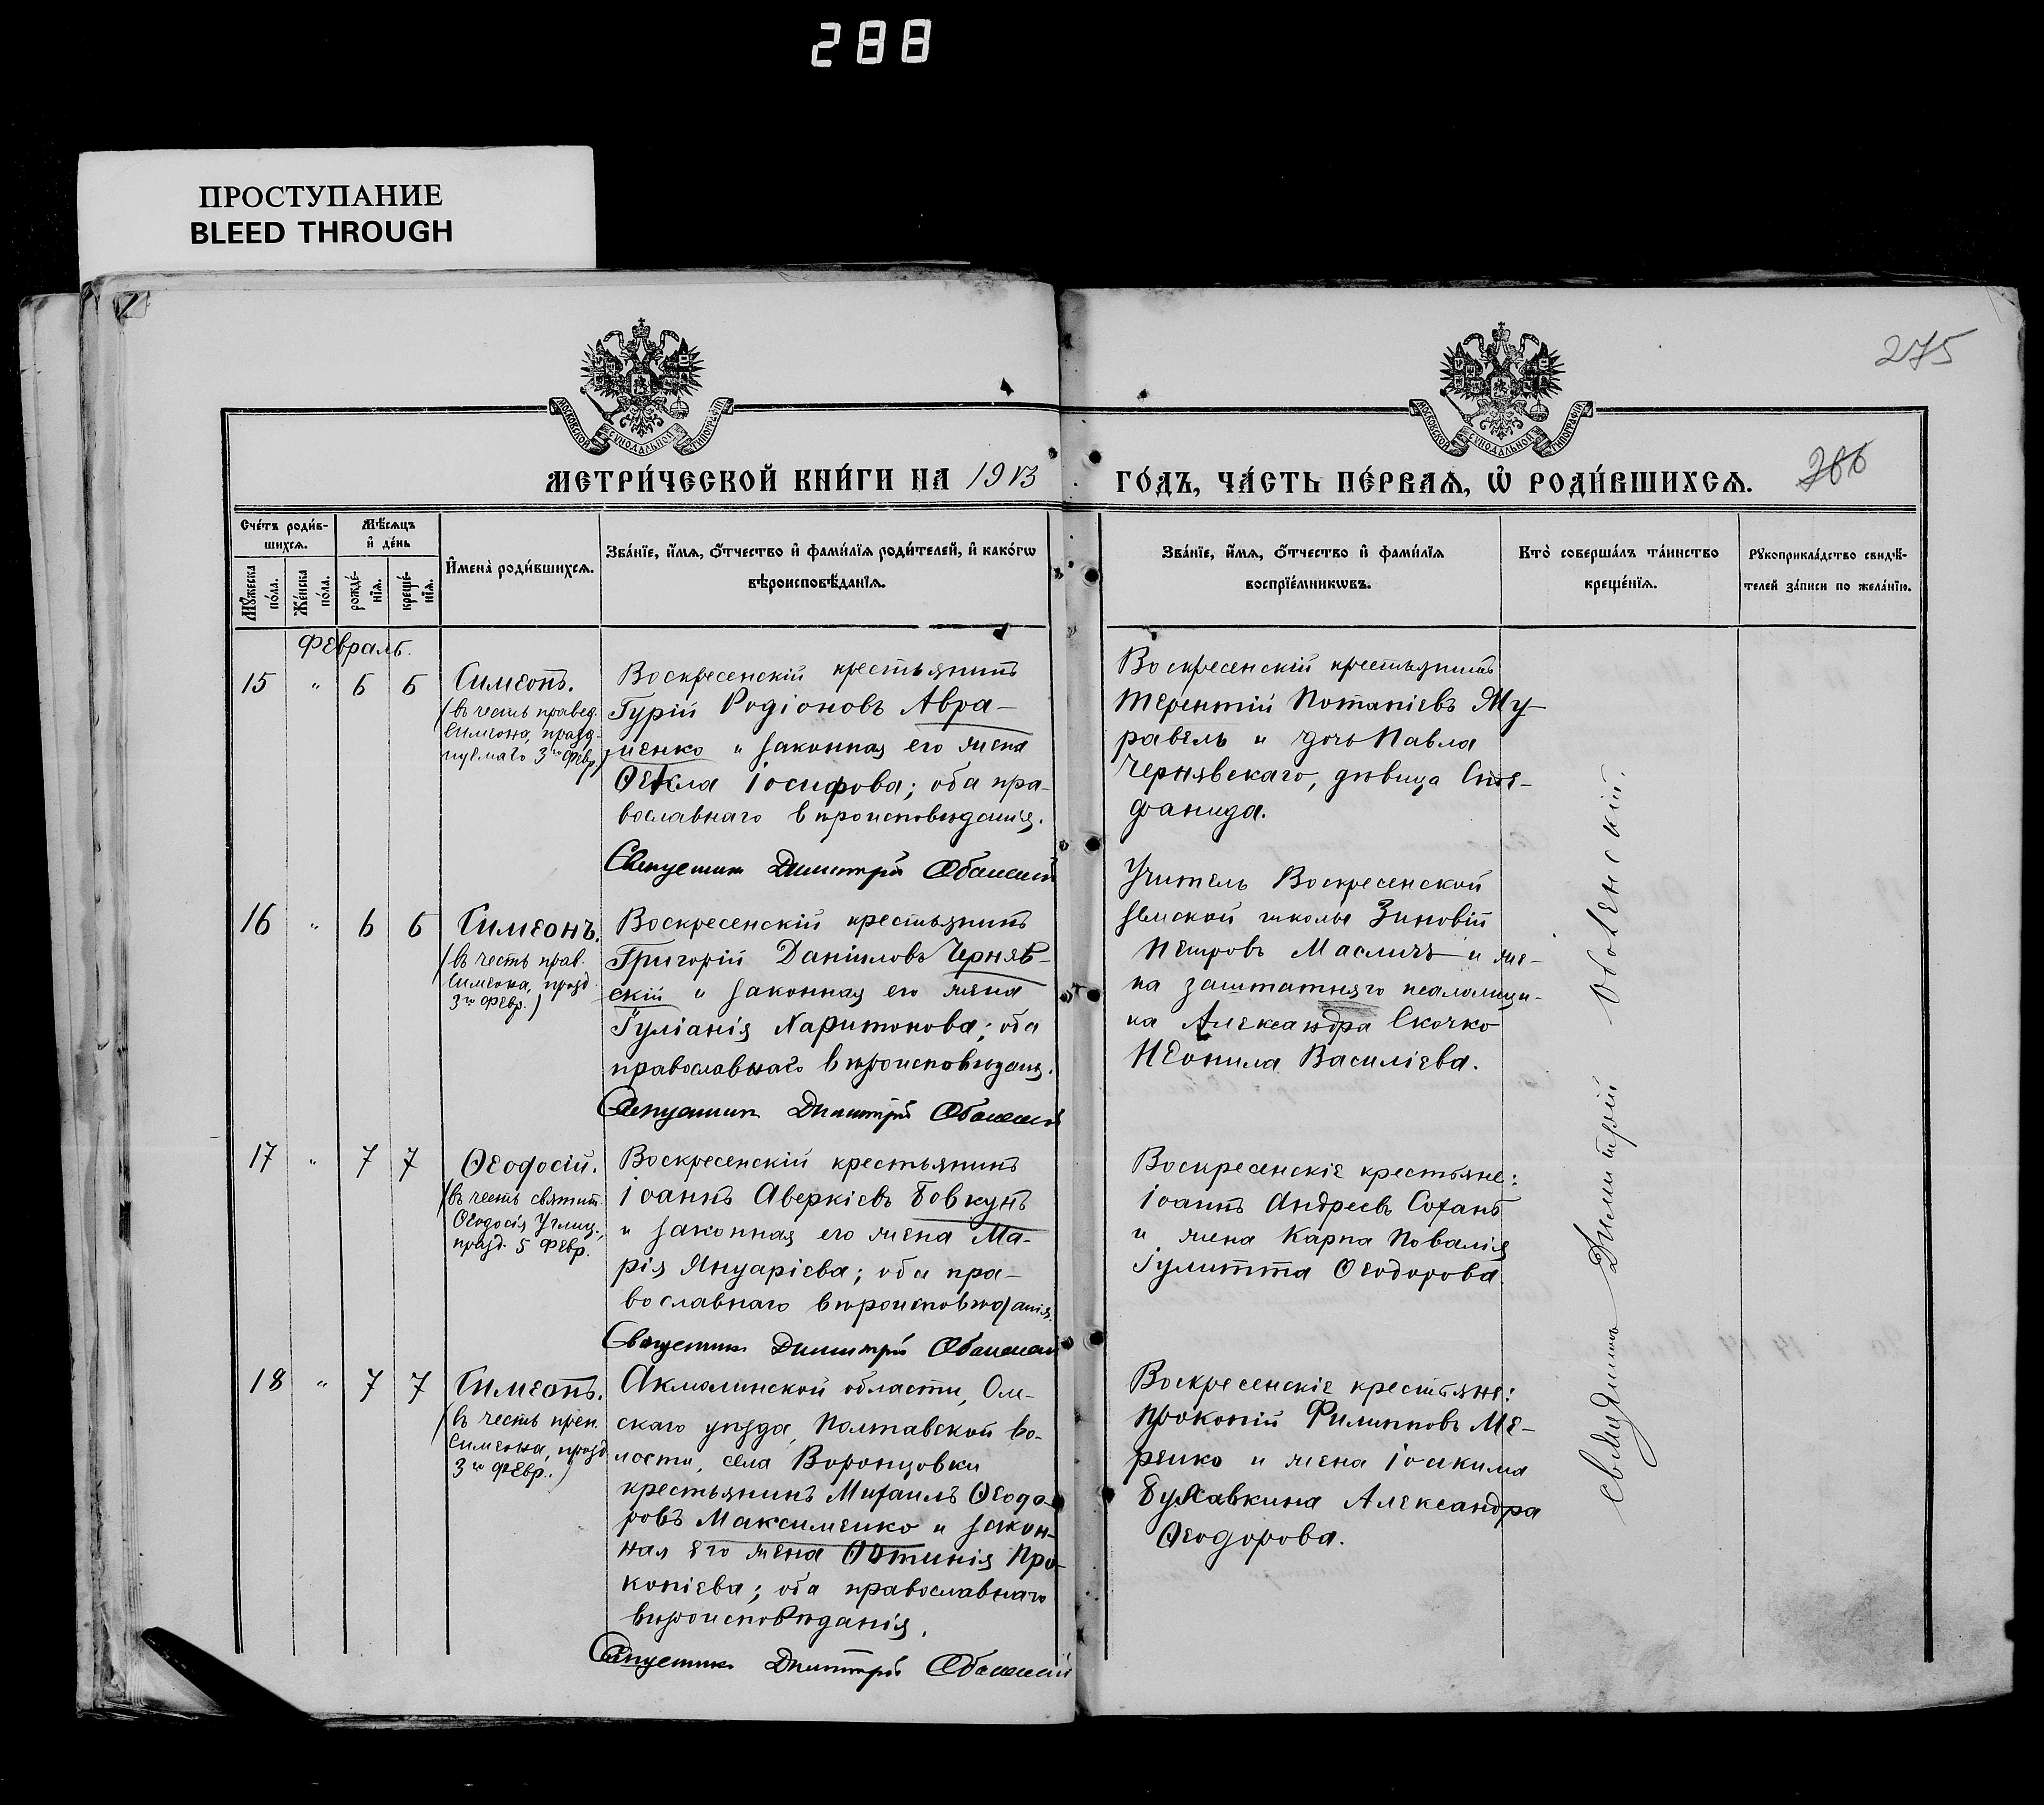 288
ПРОСТУПАНИЕ
BLEED THROUGH
275
МОСКОВСКОЙ СѴНОДАЛЬНОЙ ТИПОГРАФІИ
МОСКОВСКОЙ СѴНОДАЛЬНОЙ ТИПОГРАФІИ
МЕТРИ́ЧЕСКОЙ КНИ́ГИ НА 1913 ГО́ДЪ, ЧА́СТЬ ПЕ́РВАѦ, Ѡ҆ РОДИ́ВШИХСѦ.
Сче́тъ роди́в-
шихсѧ.
Мѣ́сѧцъ
и҆ де́нь
Мꙋ́жеска
по́ла.
Же́нска
по́ла.
рожде́-
нїѧ.
креще́-
нїѧ.
И҆мена̀ роди́вшихсѧ.
Зва́нїе, и҆́мѧ, ѻ҆́тчество и҆ фами́лїѧ роди́телей, и҆ како́гѡ
вѣроисповѣ́данїѧ.
Зва́нїе, и҆́мѧ, ѻ҆́тчество и҆ фами́лїѧ
воспрїе́мникѡвъ.
Кто̀ соверша́лъ та́инство
креще́нїѧ.
Рꙋкоприкла́дство свидѣ́-
телей за́писи по жела́нїю.
Февраль.
15 " 6 6 Симеонъ.
(въ честь правед.
Симеона, празд-
нуемаго 3го Февр.)
Воскресенскій крестьянинъ
Гурій Родіоновъ Авра-
менко и законная его жена
Ѳекла Іосифова; оба пра-
вославнаго вѣроисповѣданія.
Священникъ Димитрій
Воскресенскій крестьянинъ
Терентій Потапіевъ Му-
равель и дочь Павла
Чернявскаго, дѣвица Сте-
фанида.
16 " 6 6 Симеонъ.
(въ честь прав.
Симеона, празд.
3го Февр.)
Воскресенскій крестьянинъ
Григорій Даніиловъ Черняв-
скій и законная его жена
Іуліанія Харитонова; оба
православнаго вѣроисповѣданія.
Священникъ Димитрій
Учитель Воскресенской
земской школы Зиновій
Петровъ Масличъ и же-
на заштатнаго псаломщи-
ка Александра Скочко
Неонила Василіева.
17 " 7 7 Ѳеодосій.
(въ честь святит.
Ѳеодосія Углиц.,
празд. 5 Февр.
Воскресенскій крестьянинъ
Іоаннъ Аверкіевъ Бовкунъ
и законная его жена Ма-
рія Януаріева; оба пра-
вославнаго вѣроисповѣданія.
Священникъ Димитрій
Воскресенскіе крестьяне:
Іоаннъ Андреевъ Соханъ
и жена Карпа Повалія
Іулитта Ѳеодорова.
18 " 7 7 Симеонъ.
(въ честь прав.
Симеона, празд.
3го Февр.)
Акмолинской области, Ом-
скаго уѣзда, Полтавской во-
лости, села Воронцовки
крестьянинъ Михаилъ Ѳеодо-
ровъ Максименко и закон-
ная его жена Фотинія Про-
копіева; оба православнаго
вѣроисповѣданія.
Священникъ Димитрій
Воскресенскіе крестьяне:
Прокопій Филипповъ Ме-
ренко и жена Іоакима
Булавкина Александра
Ѳеодорова.
Священникъ Димитрій